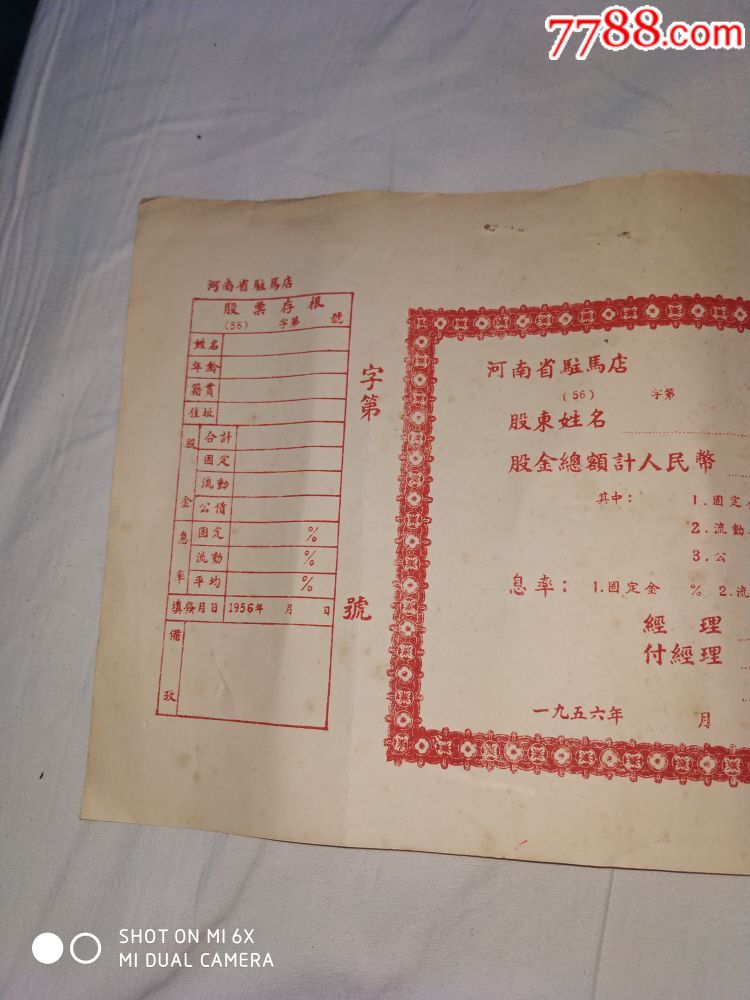 7788.com
河南省駐馬店
股票存根
(56) 字第 號
姓名
年齡
籍貫
住址
股金
合計
固定
流動
公債
息率
固定 %
流動 %
平均 %
填發月日 1956年 月 日
備攷
字第
號
河南省駐馬店
(56) 字第
股東姓名
股金總額計人民幣
其中: 1.固定
2.流動
3.公
息率: 1.固定金 % 2.流
經理
付經理
一九五六年 月
SHOT ON MI 6X
MI DUAL CAMERA